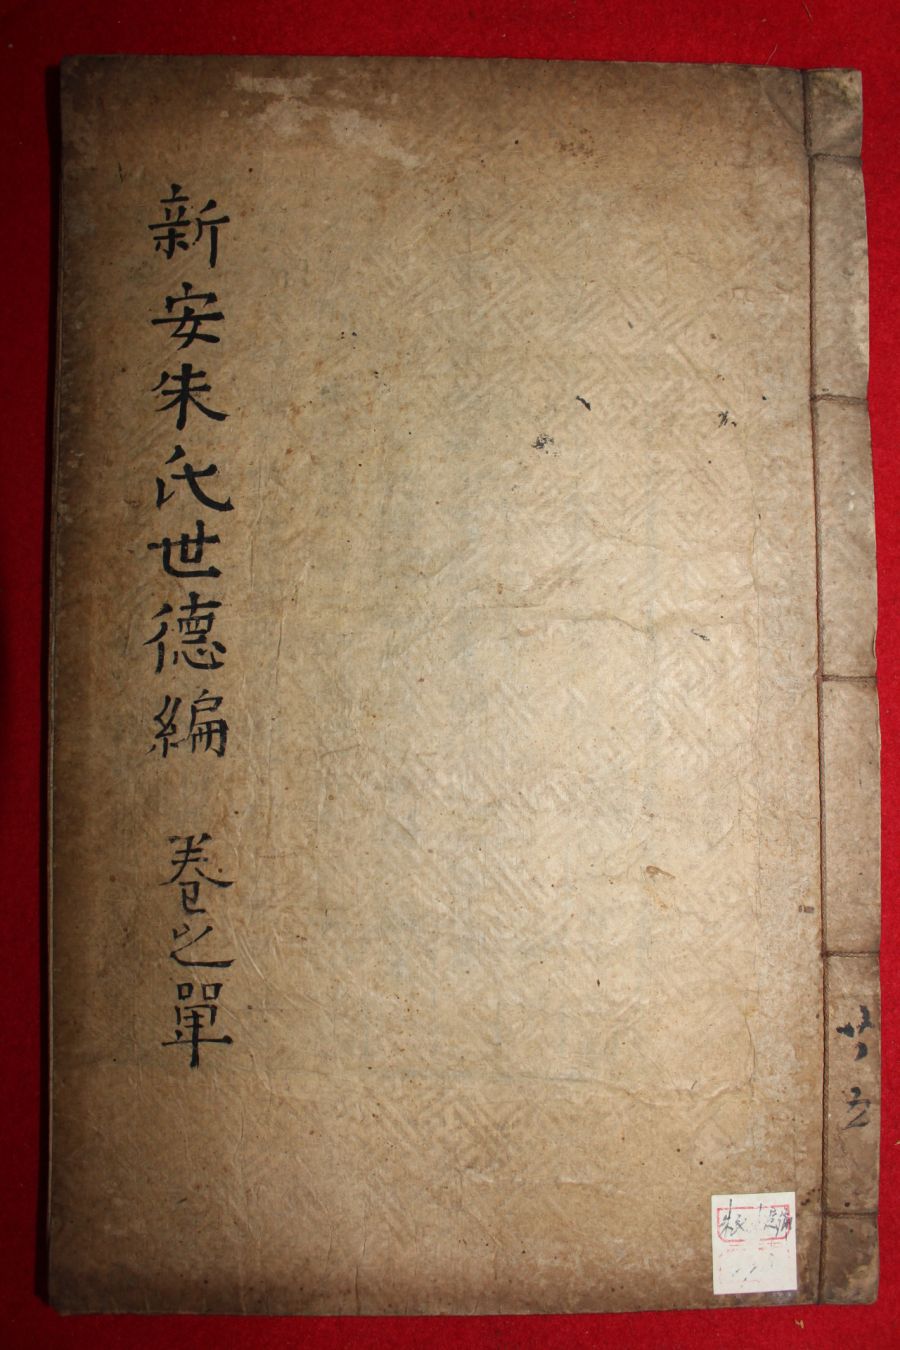 新安朱氏世德編 卷之單
共五